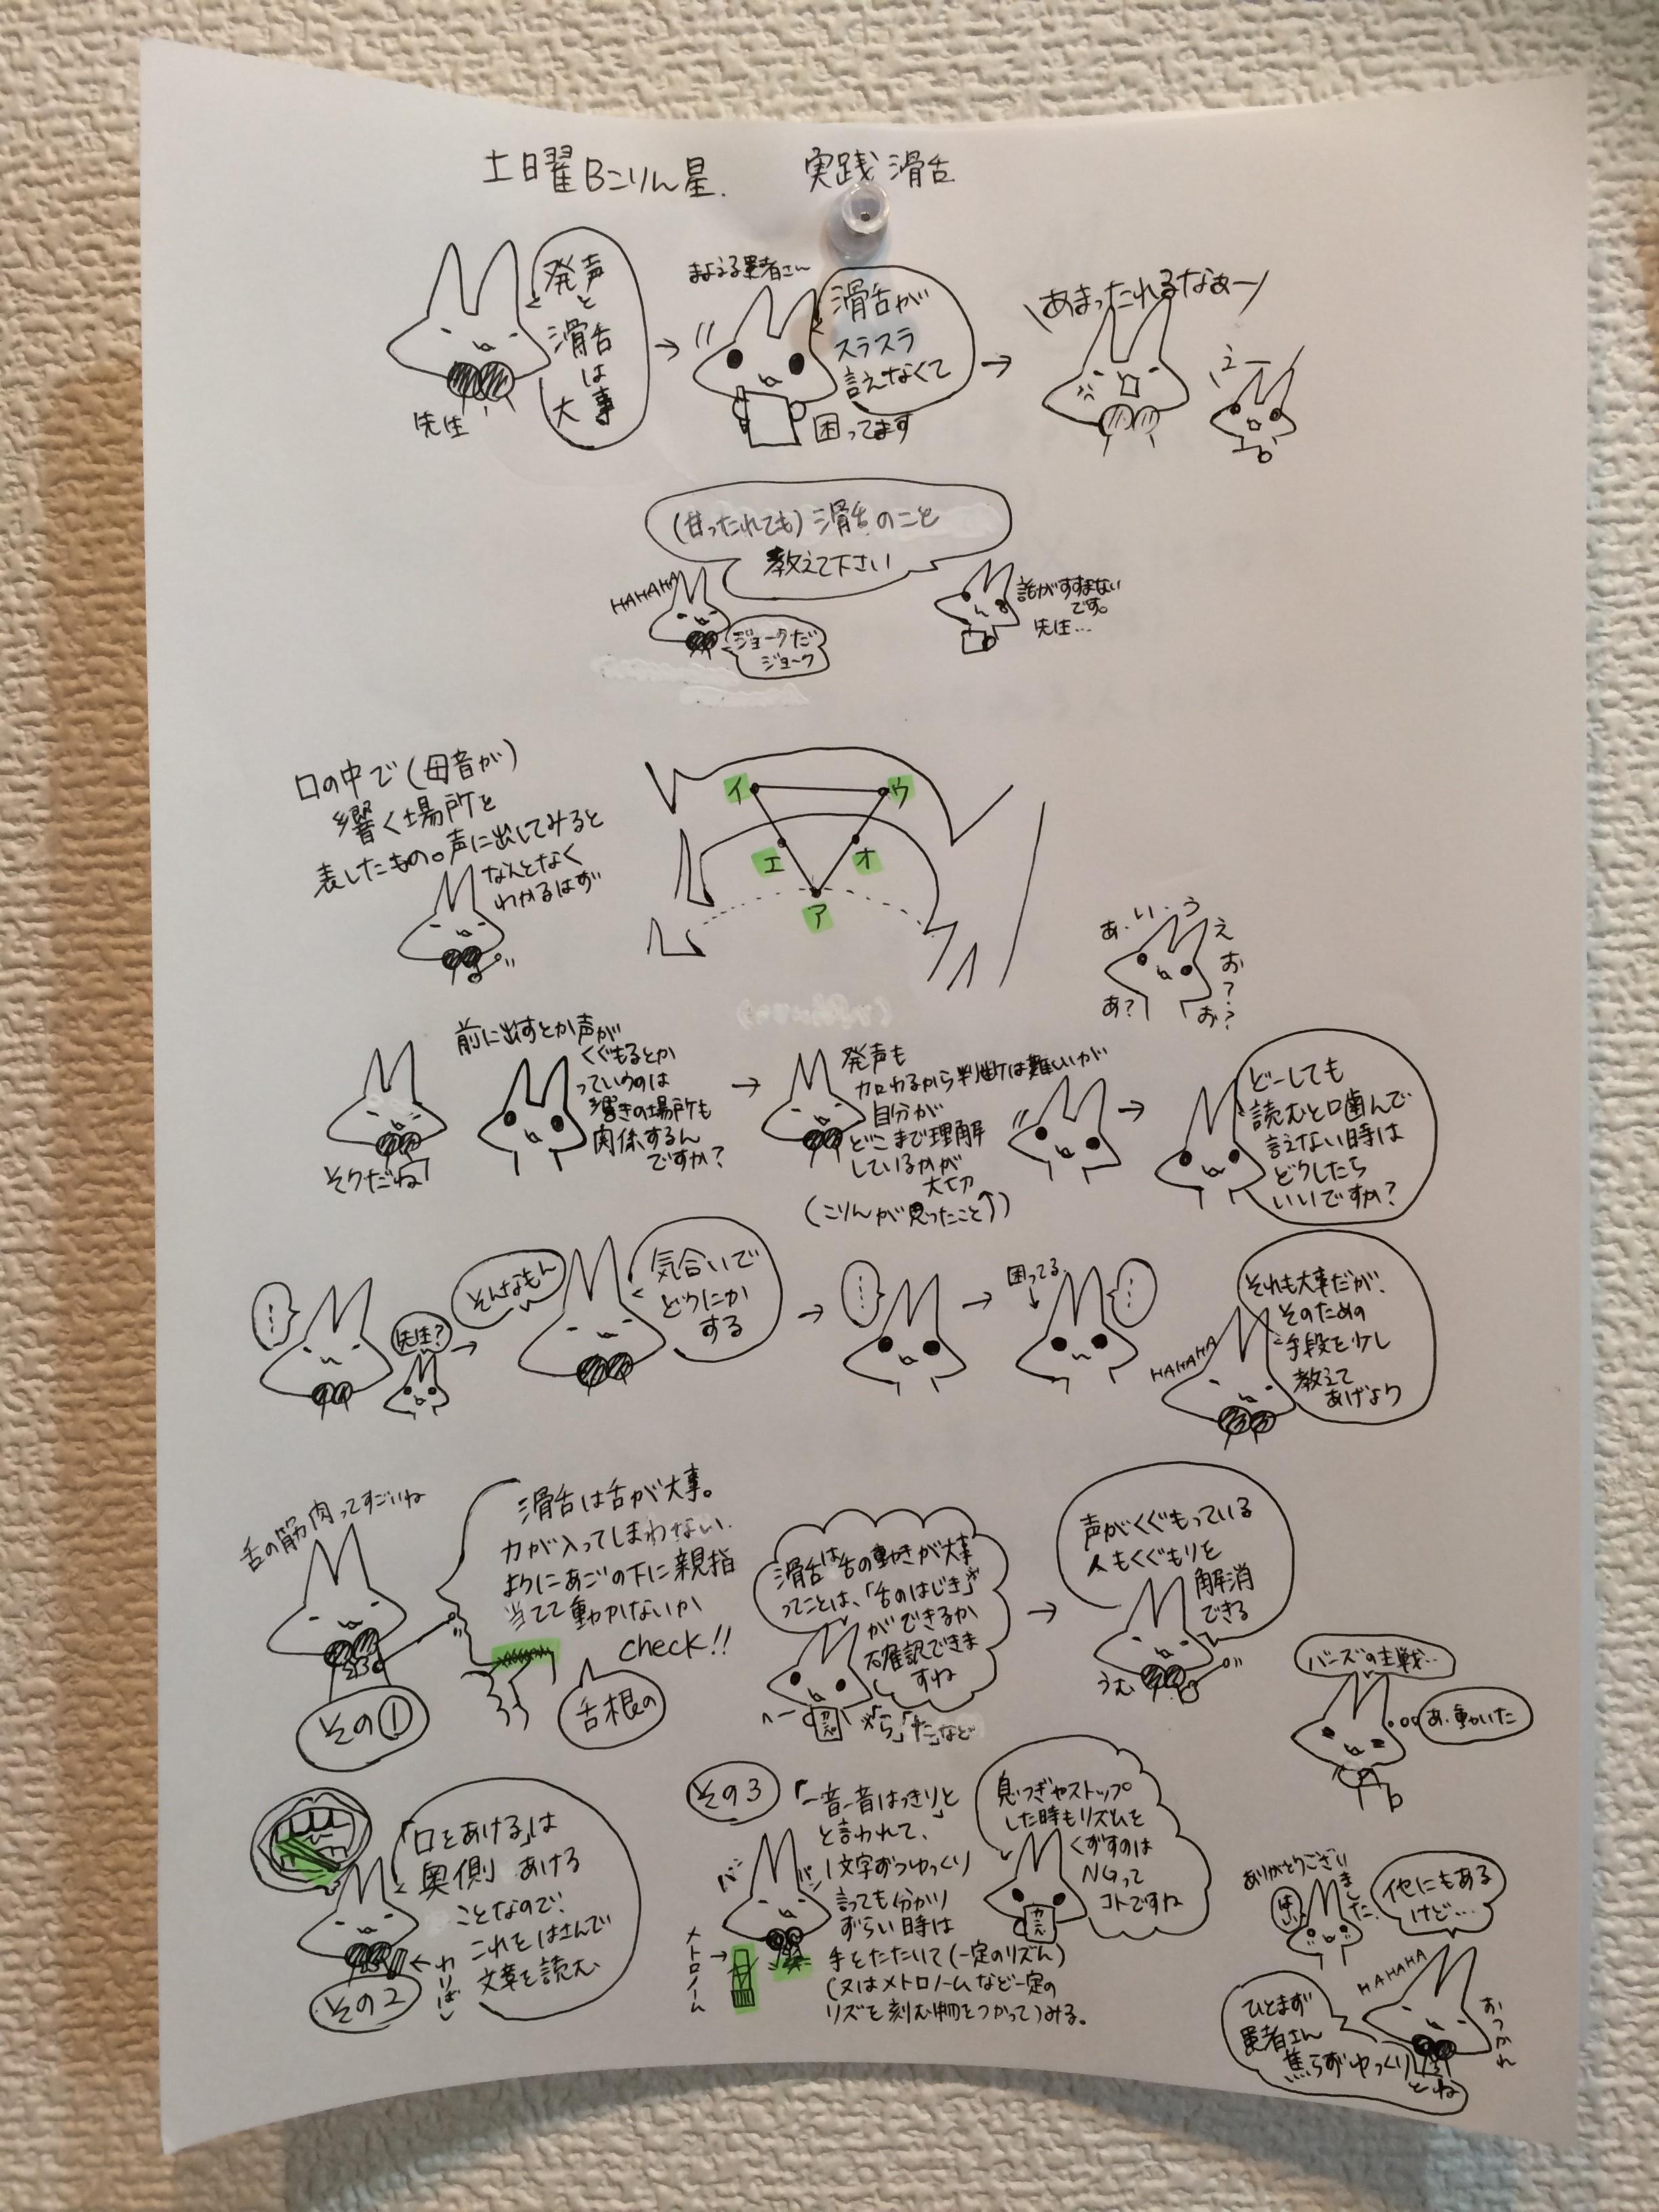 土曜Bこりん星.
実践 滑舌
発声
と
滑舌
は
大事
先生
まよえる患者さん
滑舌が
スラスラ
言えなくて
困ってます
あまったれるなぁー
えー
(甘ったれても)滑舌のこと
教えて下さい
HAHAHA
ジョークだ
ジョーク
話がすすまない
です。
先生…
口の中で(母音が)
響く場所を
表したもの。声に出してみると
なんとなく
わかるはず
イ
ウ
エ
オ
ア
あ.い.う
え
お
?
あ?
お?
そうだね
前に出すとか声が
くぐもるとか
っていうのは
響きの場所も
関係するん
ですか?
発声も
加わるから判断は難しいが
自分が
どこまで理解
しているかが
大切
(こりんが思ったこと↑)
どーしても
読むと口歯んで
言えない時は
どうしたら
いいですか?
…
先生?
そんなもん
気合いで
どうにか
する
…
困ってる
…
HAHAHA
それも大事だが、
そのための
手段を少し
教えて
あげよう
舌の筋肉ってすごいね
その①
滑舌は舌が大事。
力が入ってしまわない
ようにあごの下に親指
当てて動かないか
check!!
舌根の
滑舌は舌の動きが大事
ってことは、「舌のはじき」※
ができるか
確認できま
すね
※「ら」「た」など
声がくぐもっている
人もくぐもりを
解消
できる
うむ
バニズの主戦…
あ、動いた
「口をあける」は
奥側 あける
ことなので、
これをはさんで
文章を読む
←わりばし
その2
その3
「一音一音はっきり」と
と言われて、
1文字ずつゆっくり
言っても分かり
ずらい時は
手をたたいて(一定のリズム)
(又はメトロノームなど一定の
リズを刻む物をつかって)みる。
バン
バン
メトロノーム
息つぎやストップ
した時もリズムを
くずすのは
NGって
コトですね
カルテ
ありがとうござい
ました
他にもある
けど…
HAHAHA
ひとまず
患者さん
焦らずゆっくり
とね
おつかれ